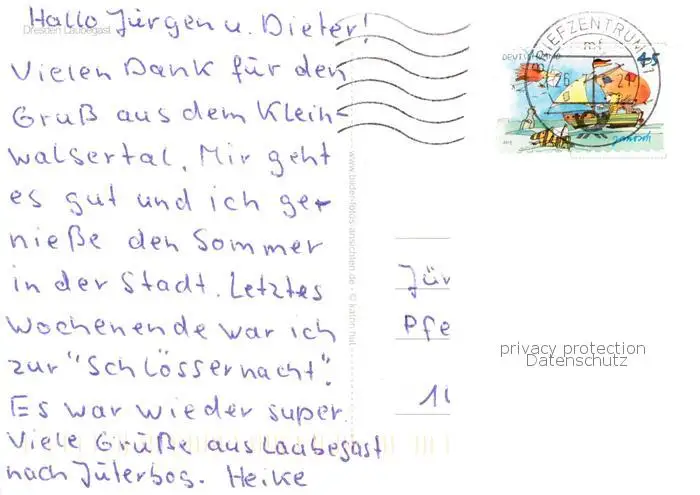 Hallo Jürgen u. Dieter!
Dresden Laubegast
Vielen Dank für den
Gruß aus dem Klein-
walsertal. Mir geht
es gut und ich ge-
nieße den Sommer
in der Stadt. Letztes
Wochenende war ich
zur "Schlössernacht".
Es war wieder super.
Viele Grüße aus Laubegast
nach Jüterbog. Heike
www.bilder-fotos-ansichten.de - © katrin
BRIEFZENTRUM
mf
DEUTSCHLAND
45
26
janosch
Jür
Pfe
14
privacy protection
Datenschutz